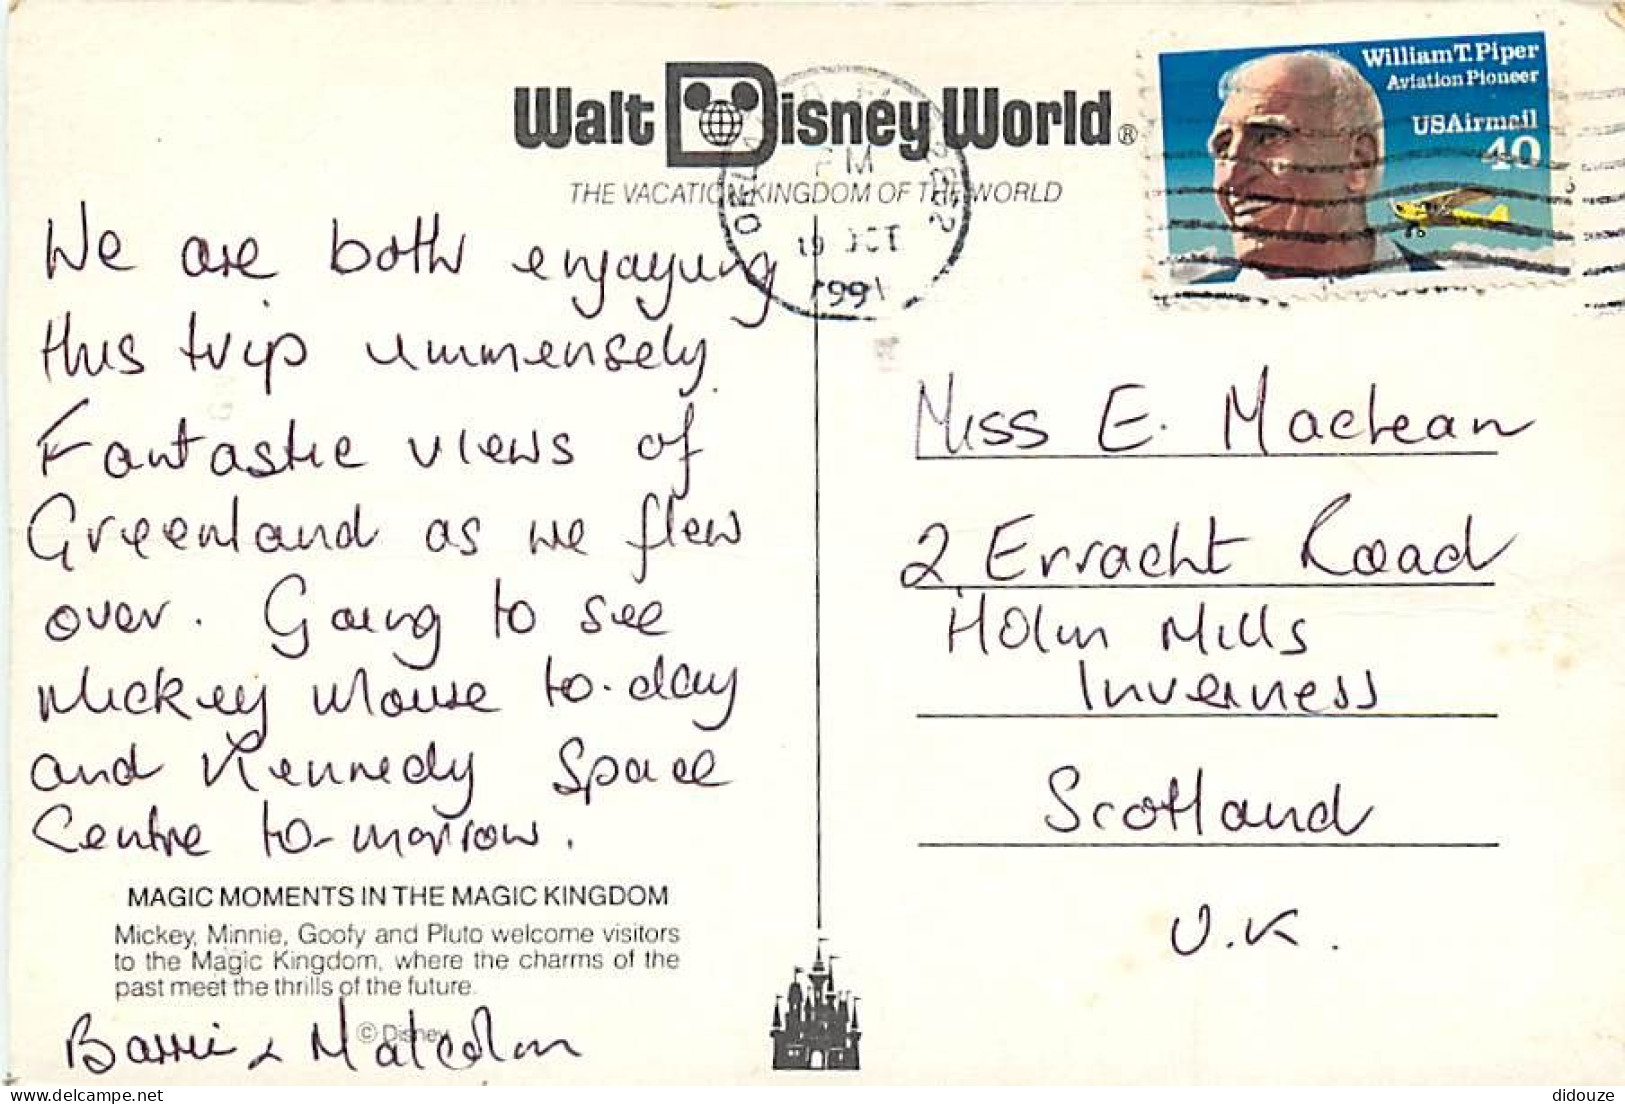 Walt Disney World®
THE VACATION KINGDOM OF THE WORLD
William T. Piper
Aviation Pioneer
USAirmail
40
PM
1991
We are both enjoying
this trip immensely.
Fantastic views of
Greenland as we flew
over. Going to see
Mickey Mouse to-day
and Kennedy Space
Centre to-morrow.
MAGIC MOMENTS IN THE MAGIC KINGDOM
Mickey, Minnie, Goofy and Pluto welcome visitors
to the Magic Kingdom, where the charms of the
past meet the thrills of the future.
© Disney
Barrie & Malcolm
Miss E. Maclean
2 Erracht Road
Holm Mills
Inverness
Scotland
U.K.
delcampe.net
didouze